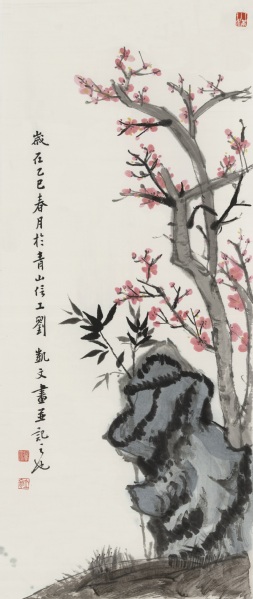 歲在乙巳春月於青山信工劉凱文畫並記之